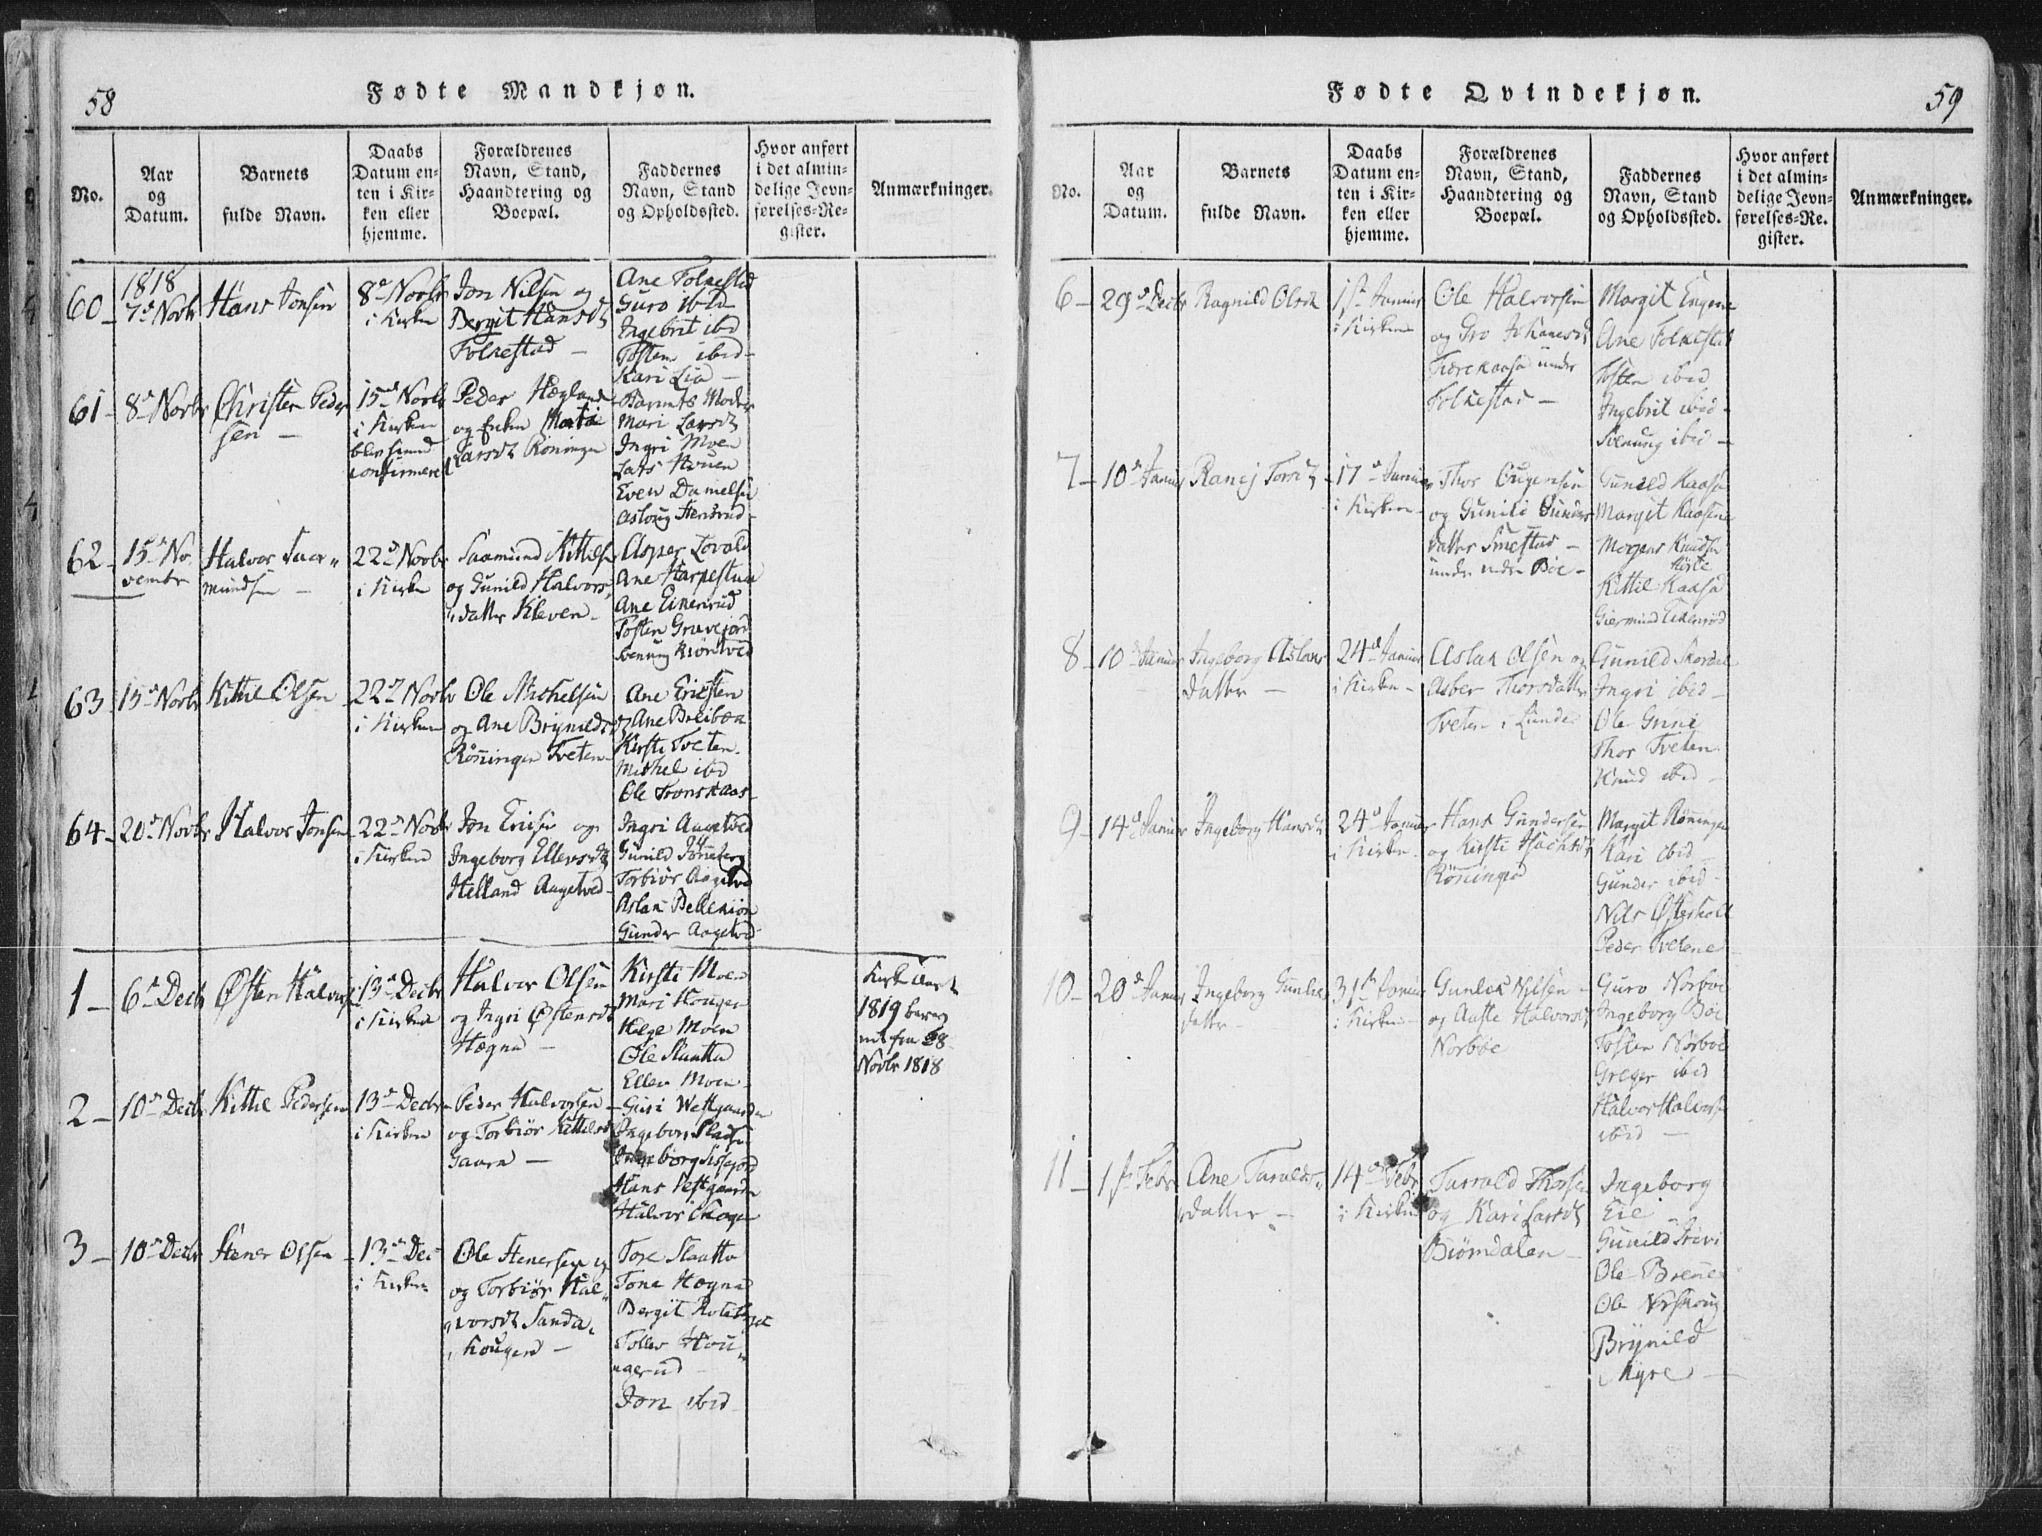 58
Fødte Mandkjøn.
No.
Aar
og
Datum.
Barnets
fulde Navn.
Daabs
Datum en-
ten i Kir-
ken eller
hjemme.
Forældrenes
Navn, Stand,
Haandtering og
Boepæl.
Faddernes
Navn, Stand
og Opholdssted.
Hvor anført
i det almin-
delige Jevn-
førelses-Re-
gister.
Anmærkninger.
60
1818
7de Novbr
Hans Jonsen
8de Novbr
i Kirken
Jon Nilsen og
Bergit Hansdt
Folkestad
Ane Folkestad
Guro ibid
Ingebrit ibid
Tosten ibid
Kari Lia
61
8de Novbr
Christen Peder
sen
15de Novbr
i Kirken
blev siund
confirmeret
Peder Hægland
og Enken
Larsdt Røningen
Barnets Moder
Mari Larsdt
Ingri Moen
Lars
Even Danielsen
Asloug
62
15de No
vembr
Halvor Saa
mundsen
22de Novbr
i Kirken
Saamund Kittilsen
og Gunild Halvors
datter Kleven
Asper Lovald
Ane Harpestua
Ane Einerud
Tosten Gravejord
Svenung
63
15de Novbr
Kittil Olsen
22de Novbr
i Kirken
Ole Michelsen
og Ane Brynildsdt
Røningen Tveten
Ane Ericsten
Ane Breiboen
Kirsti Tveten
Michel ibid
Ole
64
20de Novbr
Halvor Jonsen
22de Novbr
i Kirken
Jon Ericsen og
Ingeborg Ellevsdt
Helland Aagetved
Ingri Aagetved
Gunild
Torbiør Aagetved
Aslak
Gunder Aagetved
1
6de Decbr
Østen Halvorsen
13de Decbr
i Kirken
Halvor Olsen
og Ingri Østensdt
Hægna
Kirsti Moen
Mari Hougen
Helge Moen
Ole Slaatta
Ellev Moen
Kirkeaaret
1819 bereg
net fra 28
Novbr 1818
2
10de Decbr
Kittil Pedersen
13de Decbr
i Kirken
Peder Halvorsen
og Torbiør Kittilsdt
Gaara
Guri Vestgaarden
Ingeborg
Ingeborg
Hans Vestgaarden
Halvor Skogen
3
10de Decbr
Stener Olsen
13de Dec
i Kirken
Ole Stenersen
og Torbiør Hal
vorsdt Sanda
Kougen
Tore Slaatta
Tone Hægna
Bergit
Tollev Hou
gerud
Jon ibid
59
Fødte Qvindekjøn.
No.
Aar
og
Datum.
Barnets
fulde Navn.
Daabs
Datum en-
ten i Kir-
ken eller
hjemme.
Forældrenes
Navn, Stand,
Haandtering og
Boepæl.
Faddernes
Navn, Stand
og Opholdssted.
Hvor anført
i det almin-
delige Jevn-
førelses-Re-
gister.
Anmærkninger.
6
29de Decbr
Ragnild Olsdt
1ste Januar
i Kirken
Ole Halvorsen
og Gro Johansdt
under
Folkestad
Margit Engene
Ane Folkestad
Tosten ibid
Ingebrit ibid
Svenung ibid
7
10de Januar
Ranej Torsdt
17de Januar
i Kirken
Thor
og Gunild Gunders
datter Smestad
under nedre Bøe
Gunild Kaasa
Margit Kaasene
Mogens Knudsen
Kittil Kaasa
Giermund Eikenrød
8
10de Januar
Ingeborg Aslaks
datter
24de Januar
i Kirken
Aslak Olsen og
Asber Thorsdatter
Tveten i Lunde
Gunild Skordal
Ingri ibid
Ole Grini
Thor Tveten
Knud ibid
9
14de Januar
Ingeborg Hansdt
24de Januar
i Kirken
Hans Gundersen
og Kirsti Isachsdt
Røningen
Margit Røningen
Kari ibid
Gunder ibid
Nils Østerholt
Peder Tvetene
10
20de Januar
Ingeborg Gunleks
datter
31te Januar
i Kirken
Gunlek Nilsen
og Aaste Halvorsdt
Norbøe
Guro Norbøe
Ingeborg Bøe
Tosten Norbøe
Greger ibid
Halvor Halvorsen
ibid
11
1ste Febr
Ane Taralds
datter
14de Febr
i Kirken
Tarrald Thorsen
og Kari Larsdt
Biørndalen
Ingeborg
Eie
Gunild
Ole
Ole Norskoug
Brynild
Myre